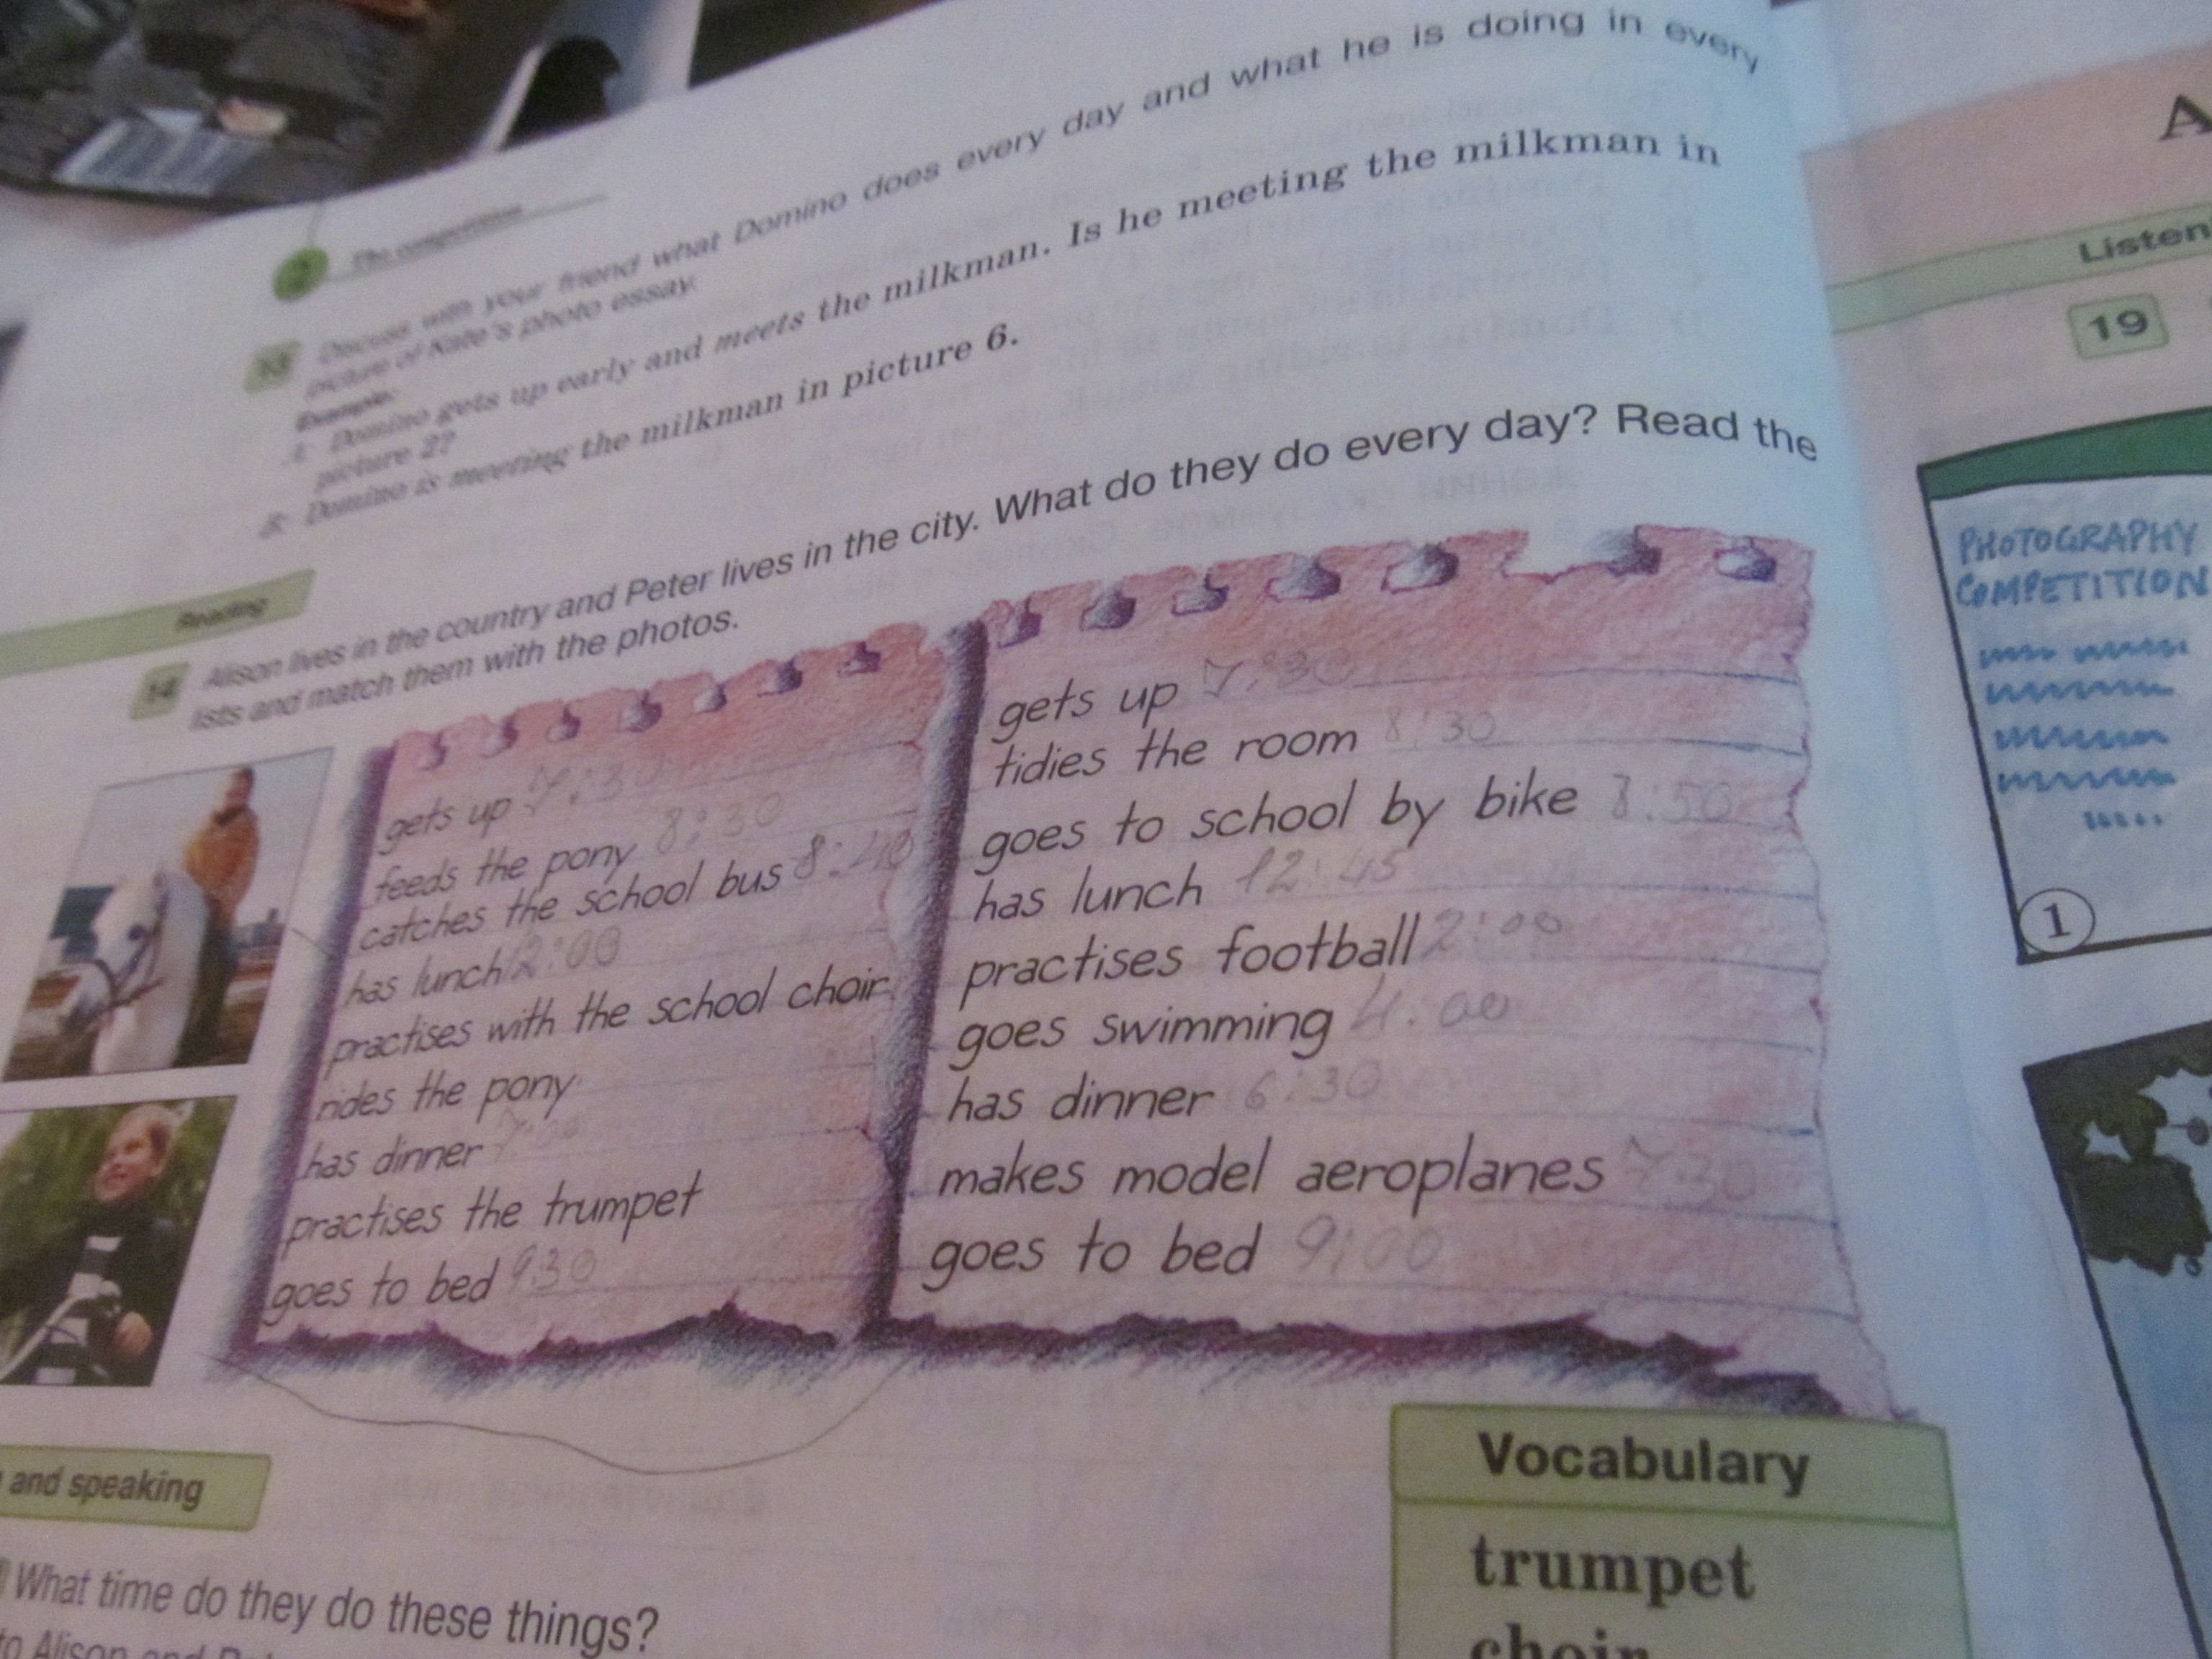 2 The competition
13 Discuss with your friend what Domino does every day and what he is doing in every
picture of Kate's photo essay.
Example:
A: Domino gets up early and meets the milkman. Is he meeting the milkman in
picture 2?
B: Domino is meeting the milkman in picture 6.
Reading
14 Alison lives in the country and Peter lives in the city. What do they do every day? Read the
lists and match them with the photos.
gets up 7:30
feeds the pony 8:30
catches the school bus 8:40
has lunch 12:00
practises with the school choir
rides the pony
has dinner 7:00
practises the trumpet
goes to bed 9.30
gets up 7:30
tidies the room 8:30
goes to school by bike 8:50
has lunch 12:45
practises football 2:00
goes swimming 4:00
has dinner 6:30
makes model aeroplanes 7:30
goes to bed 9:00
and speaking
What time do they do these things?
to Alison and
Vocabulary
trumpet
choir
A
Listen
19
PHOTOGRAPHY
COMPETITION
1